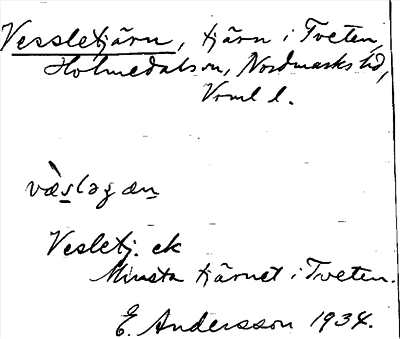 Vessletjärn, tjärn i Tveten,
Holmedals sn, Nordmarks hd,
Vrml l.
væslaȝæn
Vesletj. ek
Minsta tjärnet i Tveten.
E. Andersson 1934.